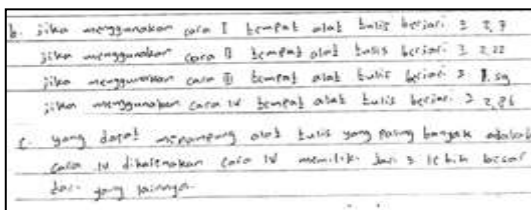 b. jika menggunakan cara I tempat alat tulis berjari 2 2,7
jika menggunakan cara II tempat alat tulis berjari 2 2,22
jika menggunakan cara III tempat alat tulis berjari 2 1,59
jika menggunakan cara IV tempat alat tulis berjari 2 2,86
c. yang dapat menampung alat tulis yang paling banyak adalah
cara IV dikarenakan cara IV memiliki Jari 2 lebih besar
dari yang lainnya.